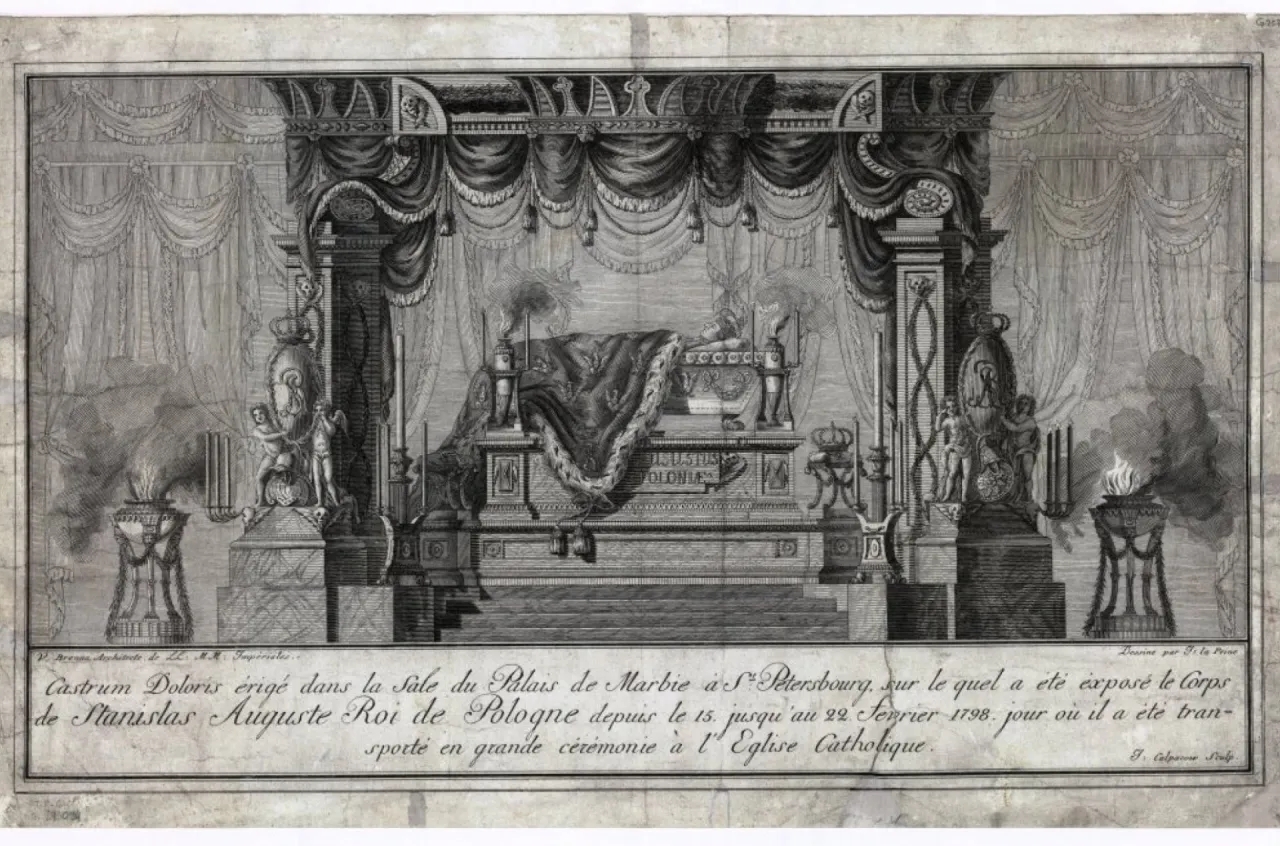 AUGUSTUS
POLONIÆ
V. Brenna Architecte de LL. M.M. Impériales.
Dessiné par
Castrum Doloris érigé dans la Sale du Palais de Marbie à St. Pétersbourg, sur le quel a été éxposé le Corps
de Stanislas Auguste Roi de Pologne depuis le 15. jusqu'au 22. Fevrier 1798. jour où il a été tran-
sporté en grande cérémonie à l'Eglise Catholique.
Sculp.